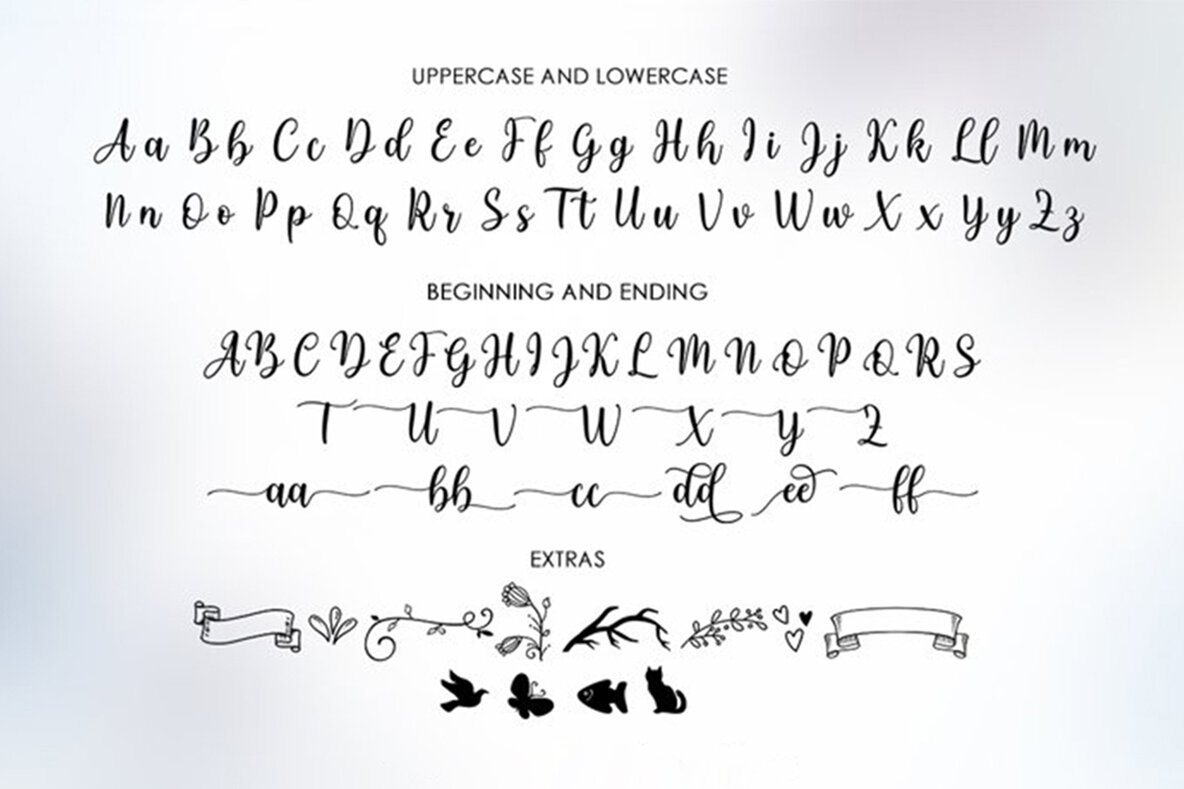 UPPERCASE AND LOWERCASE
Aa Bb Cc Dd Ee Ff Gg Hh Ii Jj Kk Ll Mm
Nn Oo Pp Qq Rr Ss Tt Uu Vv Ww Xx Yy Zz
BEGINNING AND ENDING
A B C D E F G H I J K L M N O P Q R S
T U V W X Y Z
aa bb cc dd ee ff
EXTRAS